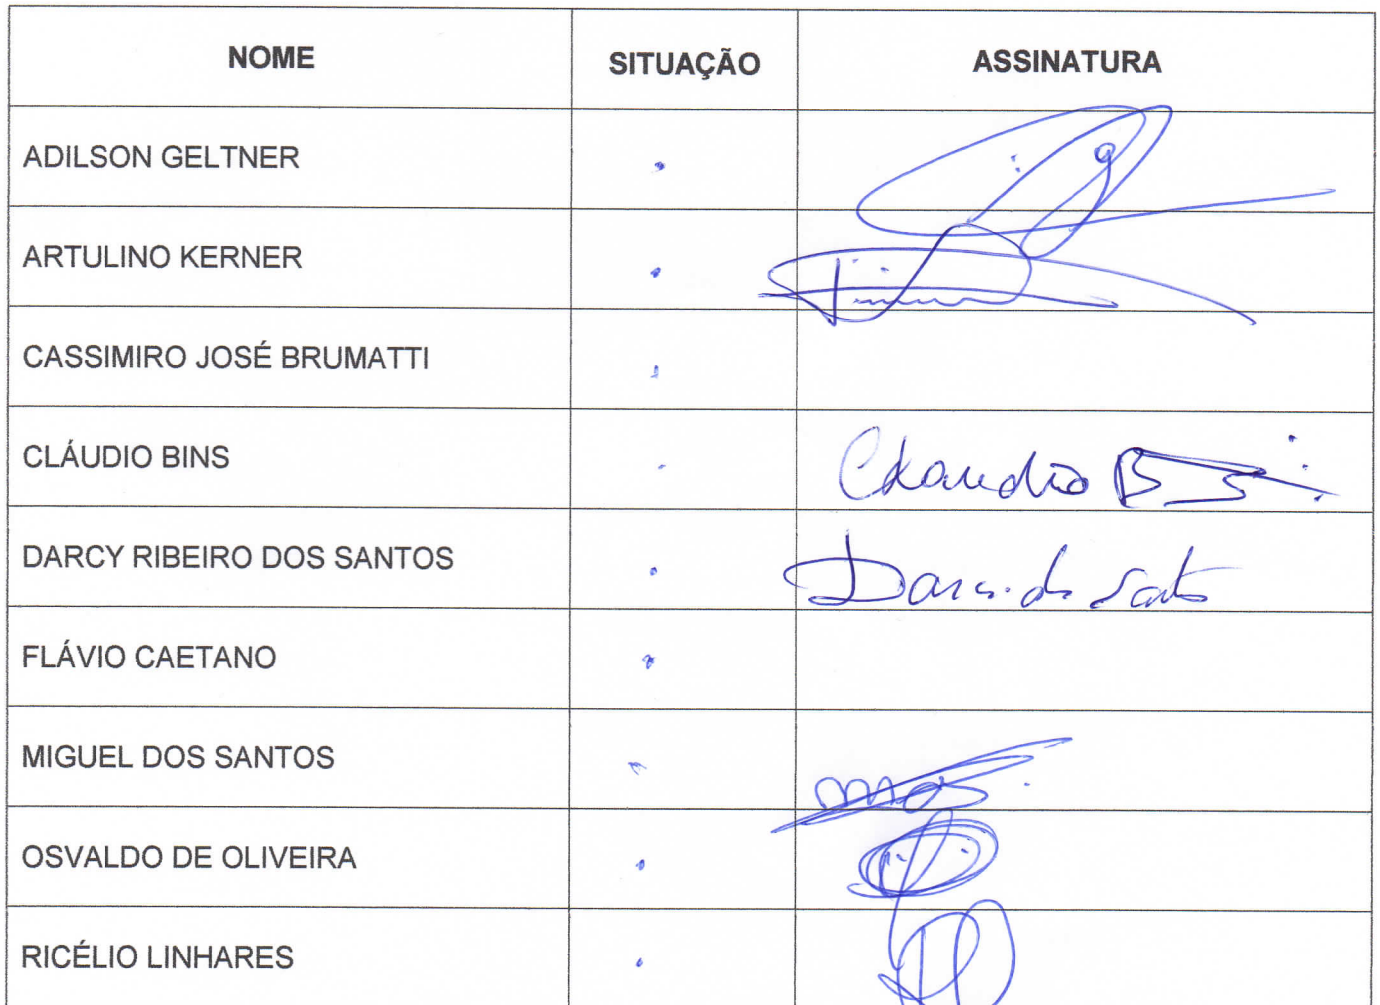 NOME SITUAÇÃO ASSINATURA
ADILSON GELTNER .
ARTULINO KERNER .
CASSIMIRO JOSÉ BRUMATTI .
CLÁUDIO BINS . Claudio
DARCY RIBEIRO DOS SANTOS .
FLÁVIO CAETANO .
MIGUEL DOS SANTOS .
OSVALDO DE OLIVEIRA .
RICÉLIO LINHARES .